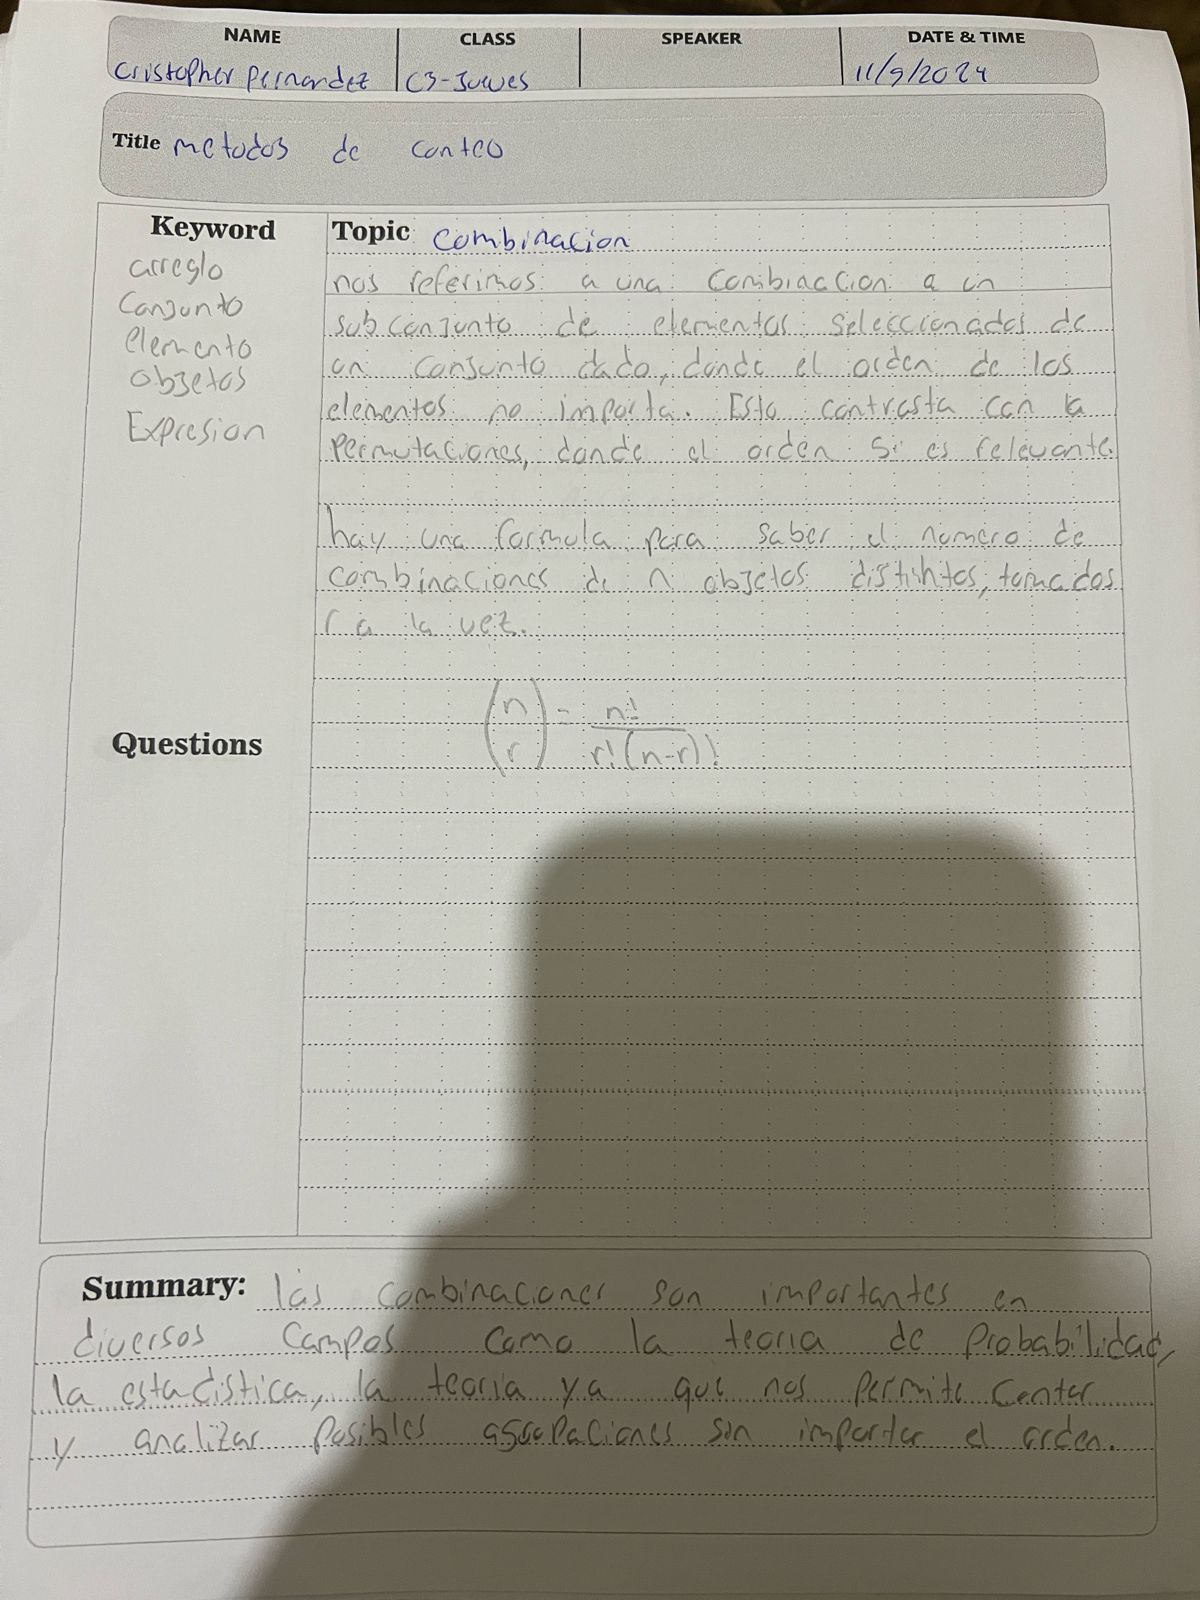 NAME CLASS SPEAKER DATE & TIME
Cristopher Pernandez C3-Jueves 11/9/2024
Title metodos de conteo
Keyword
arreglo
Conjunto
elemento
objetos
Expresion
Topic Combinacion
nos referimos a una Combinaccion a un
subconjunto de elementos seleccionados de
un conjunto dado, donde el orden de los
elementos no importa. Esto contrasta con la
Permutaciones, donde el orden si es relevante.
hay una formula para saber el numero de
combinaciones de n objetos distintos, tomados
r a la vez.
(n r) = n! / r!(n-r)!
Questions
Summary: las combinaciones son importantes en
diversos Campos como la teoria de Probabilidad,
la estadistica, la teoria ya que nos Permite Contar
y analizar Posibles agrupaciones sin importar el orden.